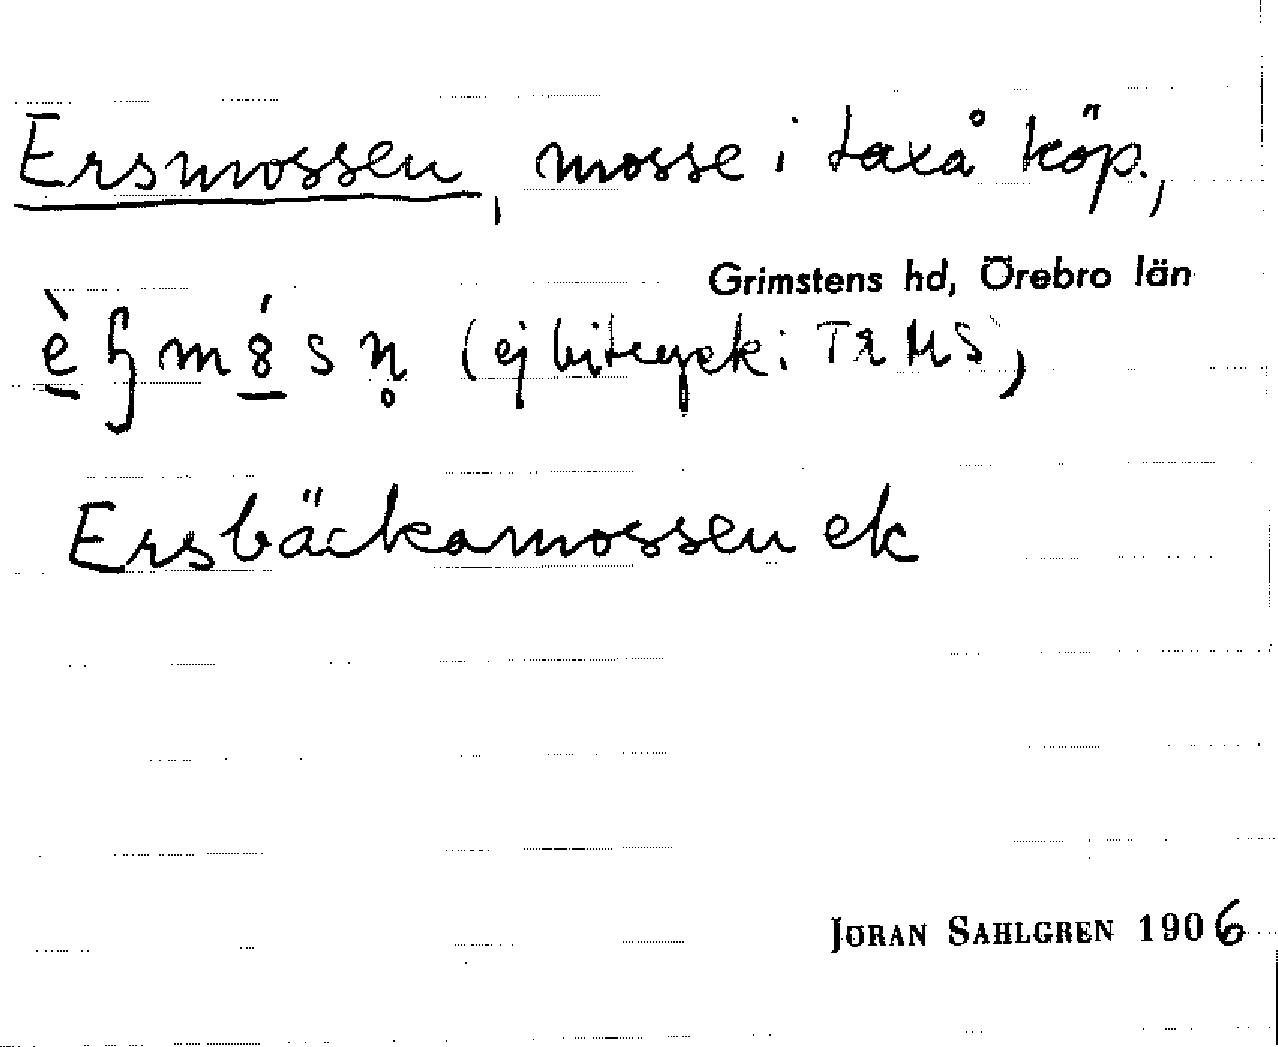 Ersmossen, mosse i Laxå köp.,
Grimstens hd, Örebro län
(ej
Ersbäckamossen ek
JÖRAN SAHLGREN 1906